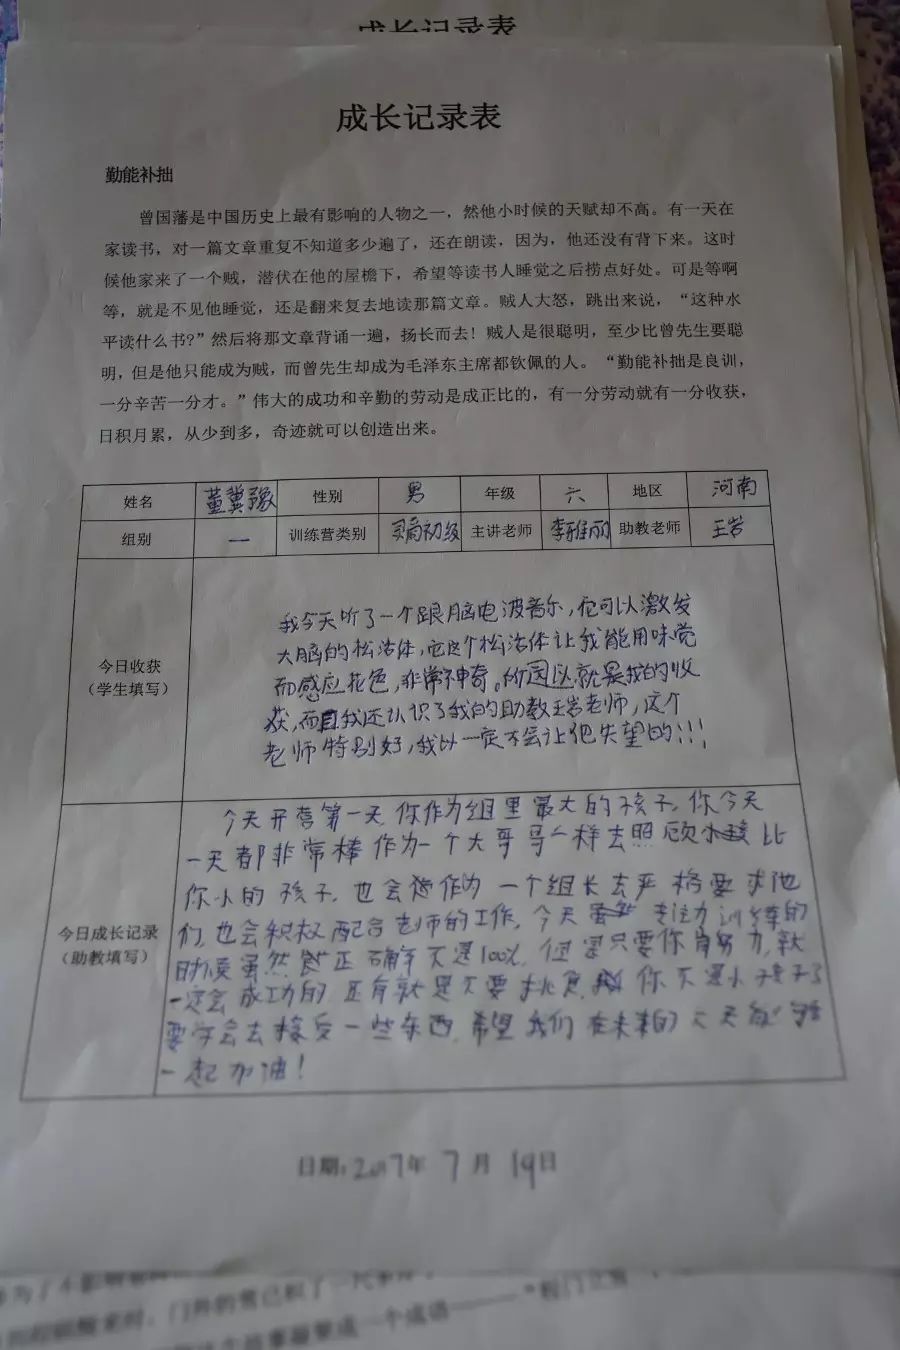 成长记录表
成长记录表
勤能补拙
曾国藩是中国历史上最有影响的人物之一，然他小时候的天赋却不高。有一天在
家读书，对一篇文章重复不知道多少遍了，还在朗读，因为，他还没有背下来。这时
候他家来了一个贼，潜伏在他的屋檐下，希望等读书人睡觉之后捞点好处。可是等啊
等，就是不见他睡觉，还是翻来复去地读那篇文章。贼人大怒，跳出来说，“这种水
平读什么书?”然后将那文章背诵一遍，扬长而去！贼人是很聪明，至少比曾先生要聪
明，但是他只能成为贼，而曾先生却成为毛泽东主席都钦佩的人。“勤能补拙是良训，
一分辛苦一分才。”伟大的成功和辛勤的劳动是成正比的，有一分劳动就有一分收获，
日积月累，从少到多，奇迹就可以创造出来。
姓名 董冀豫 性别 男 年级 六 地区 河南
组别 一 训练营类别 初级 主讲老师 李雅丽 助教老师 王岩
今日收获
（学生填写）
我今天听了一个跟脑电波音乐，它可以激发
大脑的松洁体，它这个松洁体让我能用味觉
而感应花色，非常神奇。所因以就是我的收
获，而且我还认识了我的助教王岩老师，这个
老师特别好，我以一定不会让他失望的!!!
今日成长记录
（助教填写）
今天开营第一天，你作为组里最大的孩子，你今天
一天都非常棒 作为一个大哥哥一样去照顾 比
你小的孩子，也会 作为一个组长去严格要求他
们，也会积极配合老师的工作，今天 专注力训练的
时候虽然 正确率不是100%，但是只要你肯努力，就
一定会成功的，还有就是不要挑食， 你不是小孩子了
要学会去接受一些东西，希望我们在未来的 天
一起加油！
日期：2017年 7 月 19日